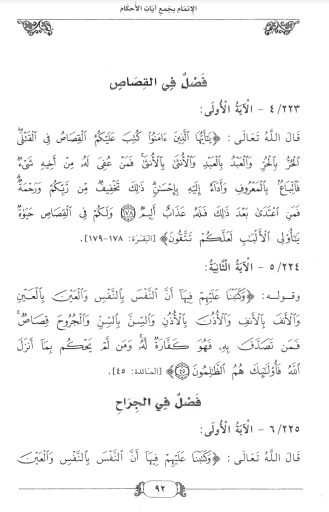 الإتمام بجمع آيات الأحكام
فَصْلٌ فِي القِصَاصِ
٤/٢٢٣ - الْآيَةُ الْأُولَى:
قَالَ اللَّهُ تَعَالَى: ﴿يَٰٓأَيُّهَا ٱلَّذِينَ ءَامَنُوا۟ كُتِبَ عَلَيْكُمُ ٱلْقِصَاصُ فِى ٱلْقَتْلَى
ٱلْحُرُّ بِٱلْحُرِّ وَٱلْعَبْدُ بِٱلْعَبْدِ وَٱلْأُنثَىٰ بِٱلْأُنثَىٰ فَمَنْ عُفِىَ لَهُۥ مِنْ أَخِيهِ شَىْءٌ
فَٱتِّبَاعٌۢ بِٱلْمَعْرُوفِ وَأَدَآءٌ إِلَيْهِ بِإِحْسَٰنٍ ذَٰلِكَ تَخْفِيفٌ مِّن رَّبِّكُمْ وَرَحْمَةٌ
فَمَنِ ٱعْتَدَىٰ بَعْدَ ذَٰلِكَ فَلَهُۥ عَذَابٌ أَلِيمٌ ﴿١٧٨﴾ وَلَكُمْ فِى ٱلْقِصَاصِ حَيَوٰةٌ
يَٰٓأُو۟لِى ٱلْأَلْبَٰبِ لَعَلَّكُمْ تَتَّقُونَ﴾ [البَقَرَة: ١٧٨-١٧٩].
٥/٢٢٤ - الْآيَةُ الثَّانِيَةُ:
وقوله: ﴿وَكَتَبْنَا عَلَيْهِمْ فِيهَآ أَنَّ ٱلنَّفْسَ بِٱلنَّفْسِ وَٱلْعَيْنَ بِٱلْعَيْنِ
وَٱلْأَنفَ بِٱلْأَنفِ وَٱلْأُذُنَ بِٱلْأُذُنِ وَٱلسِّنَّ بِٱلسِّنِّ وَٱلْجُرُوحَ قِصَاصٌ
فَمَن تَصَدَّقَ بِهِۦ فَهُوَ كَفَّارَةٌ لَّهُۥ وَمَن لَّمْ يَحْكُم بِمَآ أَنزَلَ
ٱللَّهُ فَأُو۟لَٰٓئِكَ هُمُ ٱلظَّٰلِمُونَ ﴿٤٥﴾﴾ [المَائدة: ٤٥].
فَصْلٌ فِي الجِرَاحِ
٦/٢٢٥ - الْآيَةُ الْأُولَى:
قَالَ اللَّهُ تَعَالَى: ﴿وَكَتَبْنَا عَلَيْهِمْ فِيهَآ أَنَّ ٱلنَّفْسَ بِٱلنَّفْسِ وَٱلْعَيْنَ
٩٢